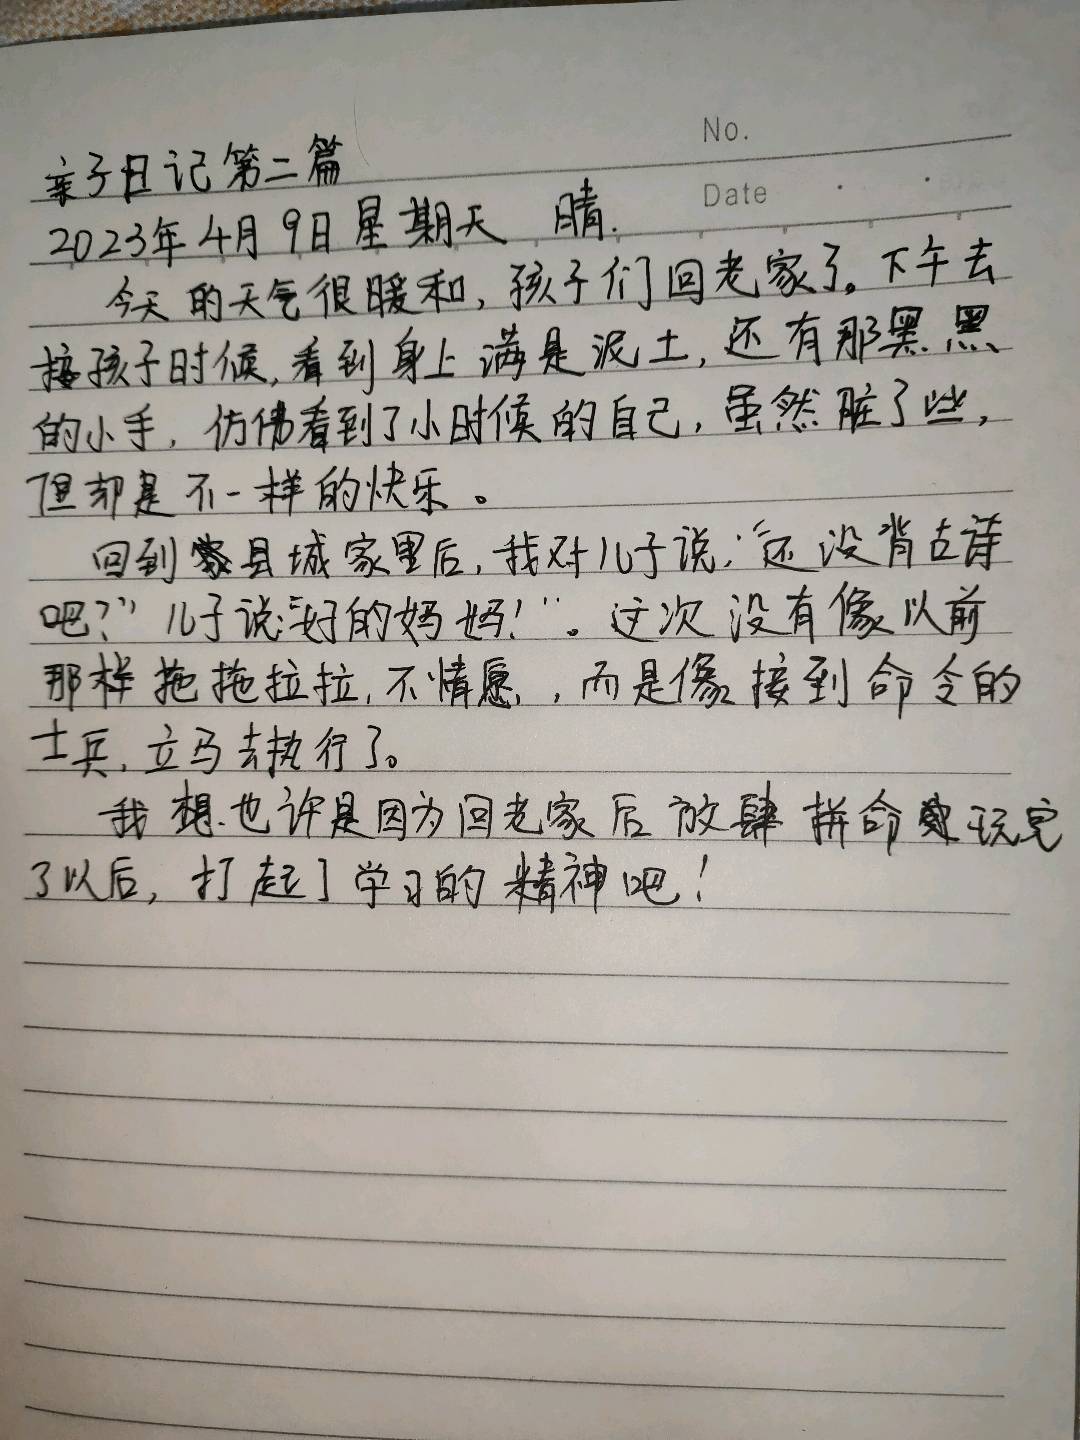 No.
亲子日记第二篇
Date
2023年4月9日星期天 晴.
今天的天气很暖和,孩子们回老家了。下午去
接孩子时候,看到身上满是泥土,还有那黑黑
的小手,仿佛看到了小时候的自己,虽然脏了些,
但却是不一样的快乐。
回到县城家里后,我对儿子说:“还没背古诗
吧?”儿子说:“好的妈妈!”。这次没有像以前
那样拖拖拉拉,不情愿,,而是像接到命令的
士兵,立马去执行了。
我想.也许是因为回老家后放肆拼命玩完
了以后,打起了学习的精神吧!